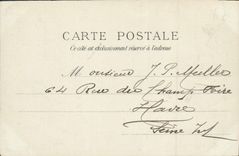 CARTE POSTALE
Ce côté est exclusivement réservé à l'adresse
Monsieur J. P. Mueller
64 Rue du Champ Foire
Havre
Seine Inf